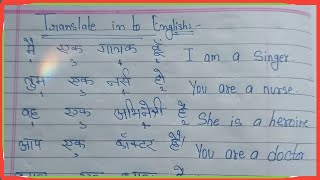 Translate in to English:-
मैं एक गायक हूँ I am a Singer
तुम एक नर्स हो You are a nurse
वह एक अभिनेत्री है She is a heroine
आप एक डॉक्टर हैं। You are a doctor
एक